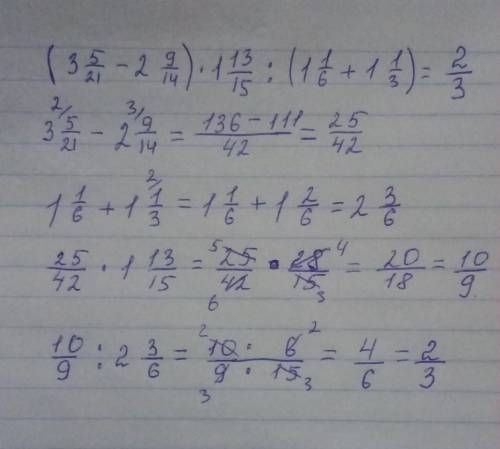 (3 5/21 − 2 9/14) · 1 13/15 : (1 1/6 + 1 1/3) = 2/3
3 5/21 (2/) − 2 9/14 (3/) = (136 − 111)/42 = 25/42
1 1/6 + 1 1/3 (2/) = 1 1/6 + 1 2/6 = 2 3/6
25/42 · 1 13/15 = 5 25/42 6 · 28/15 4 3 = 20/18 = 10/9
10/9 : 2 3/6 = 2 (10 · 6)/(9 · 15) 2 3 3 = 4/6 = 2/3